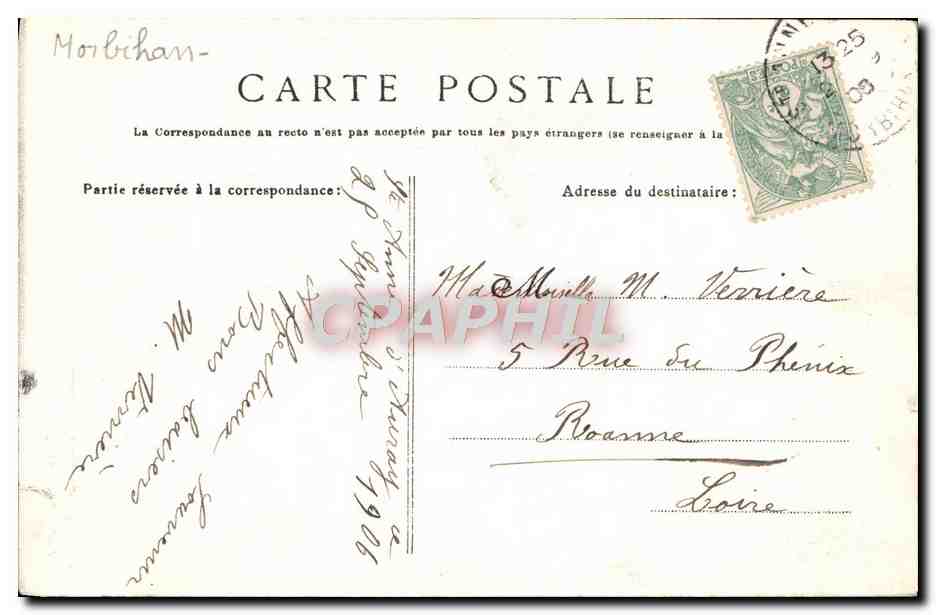 Morbihan-
CARTE POSTALE
La Correspondance au recto n'est pas acceptée par tous les pays étrangers (se renseigner à la
Partie réservée à la correspondance:
Adresse du destinataire:
Ste Anne d'Auray ce
28 Septembre 1906
Affectueux Souvenir
Bons baisers
M. Verrière
Mademoiselle M. Verrière
5 Rue du Phénix
Roanne
Loire
CPAPHIL
13 25